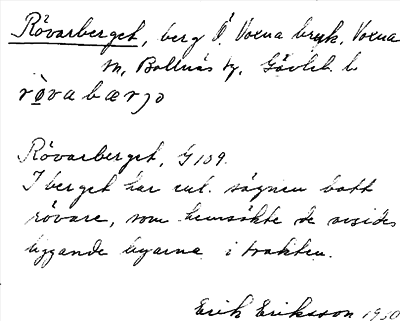 Rövarberget, berg Ö. Voxna bruk, Voxna
Bollnäs tg, Gävleb. l.
rövabærjo
Rövarberget, G 109.
I berget har enl. sägnen bott
rövare, som hemsökte de avsides
liggande byarna i trakten.
Erik Eriksson 1930